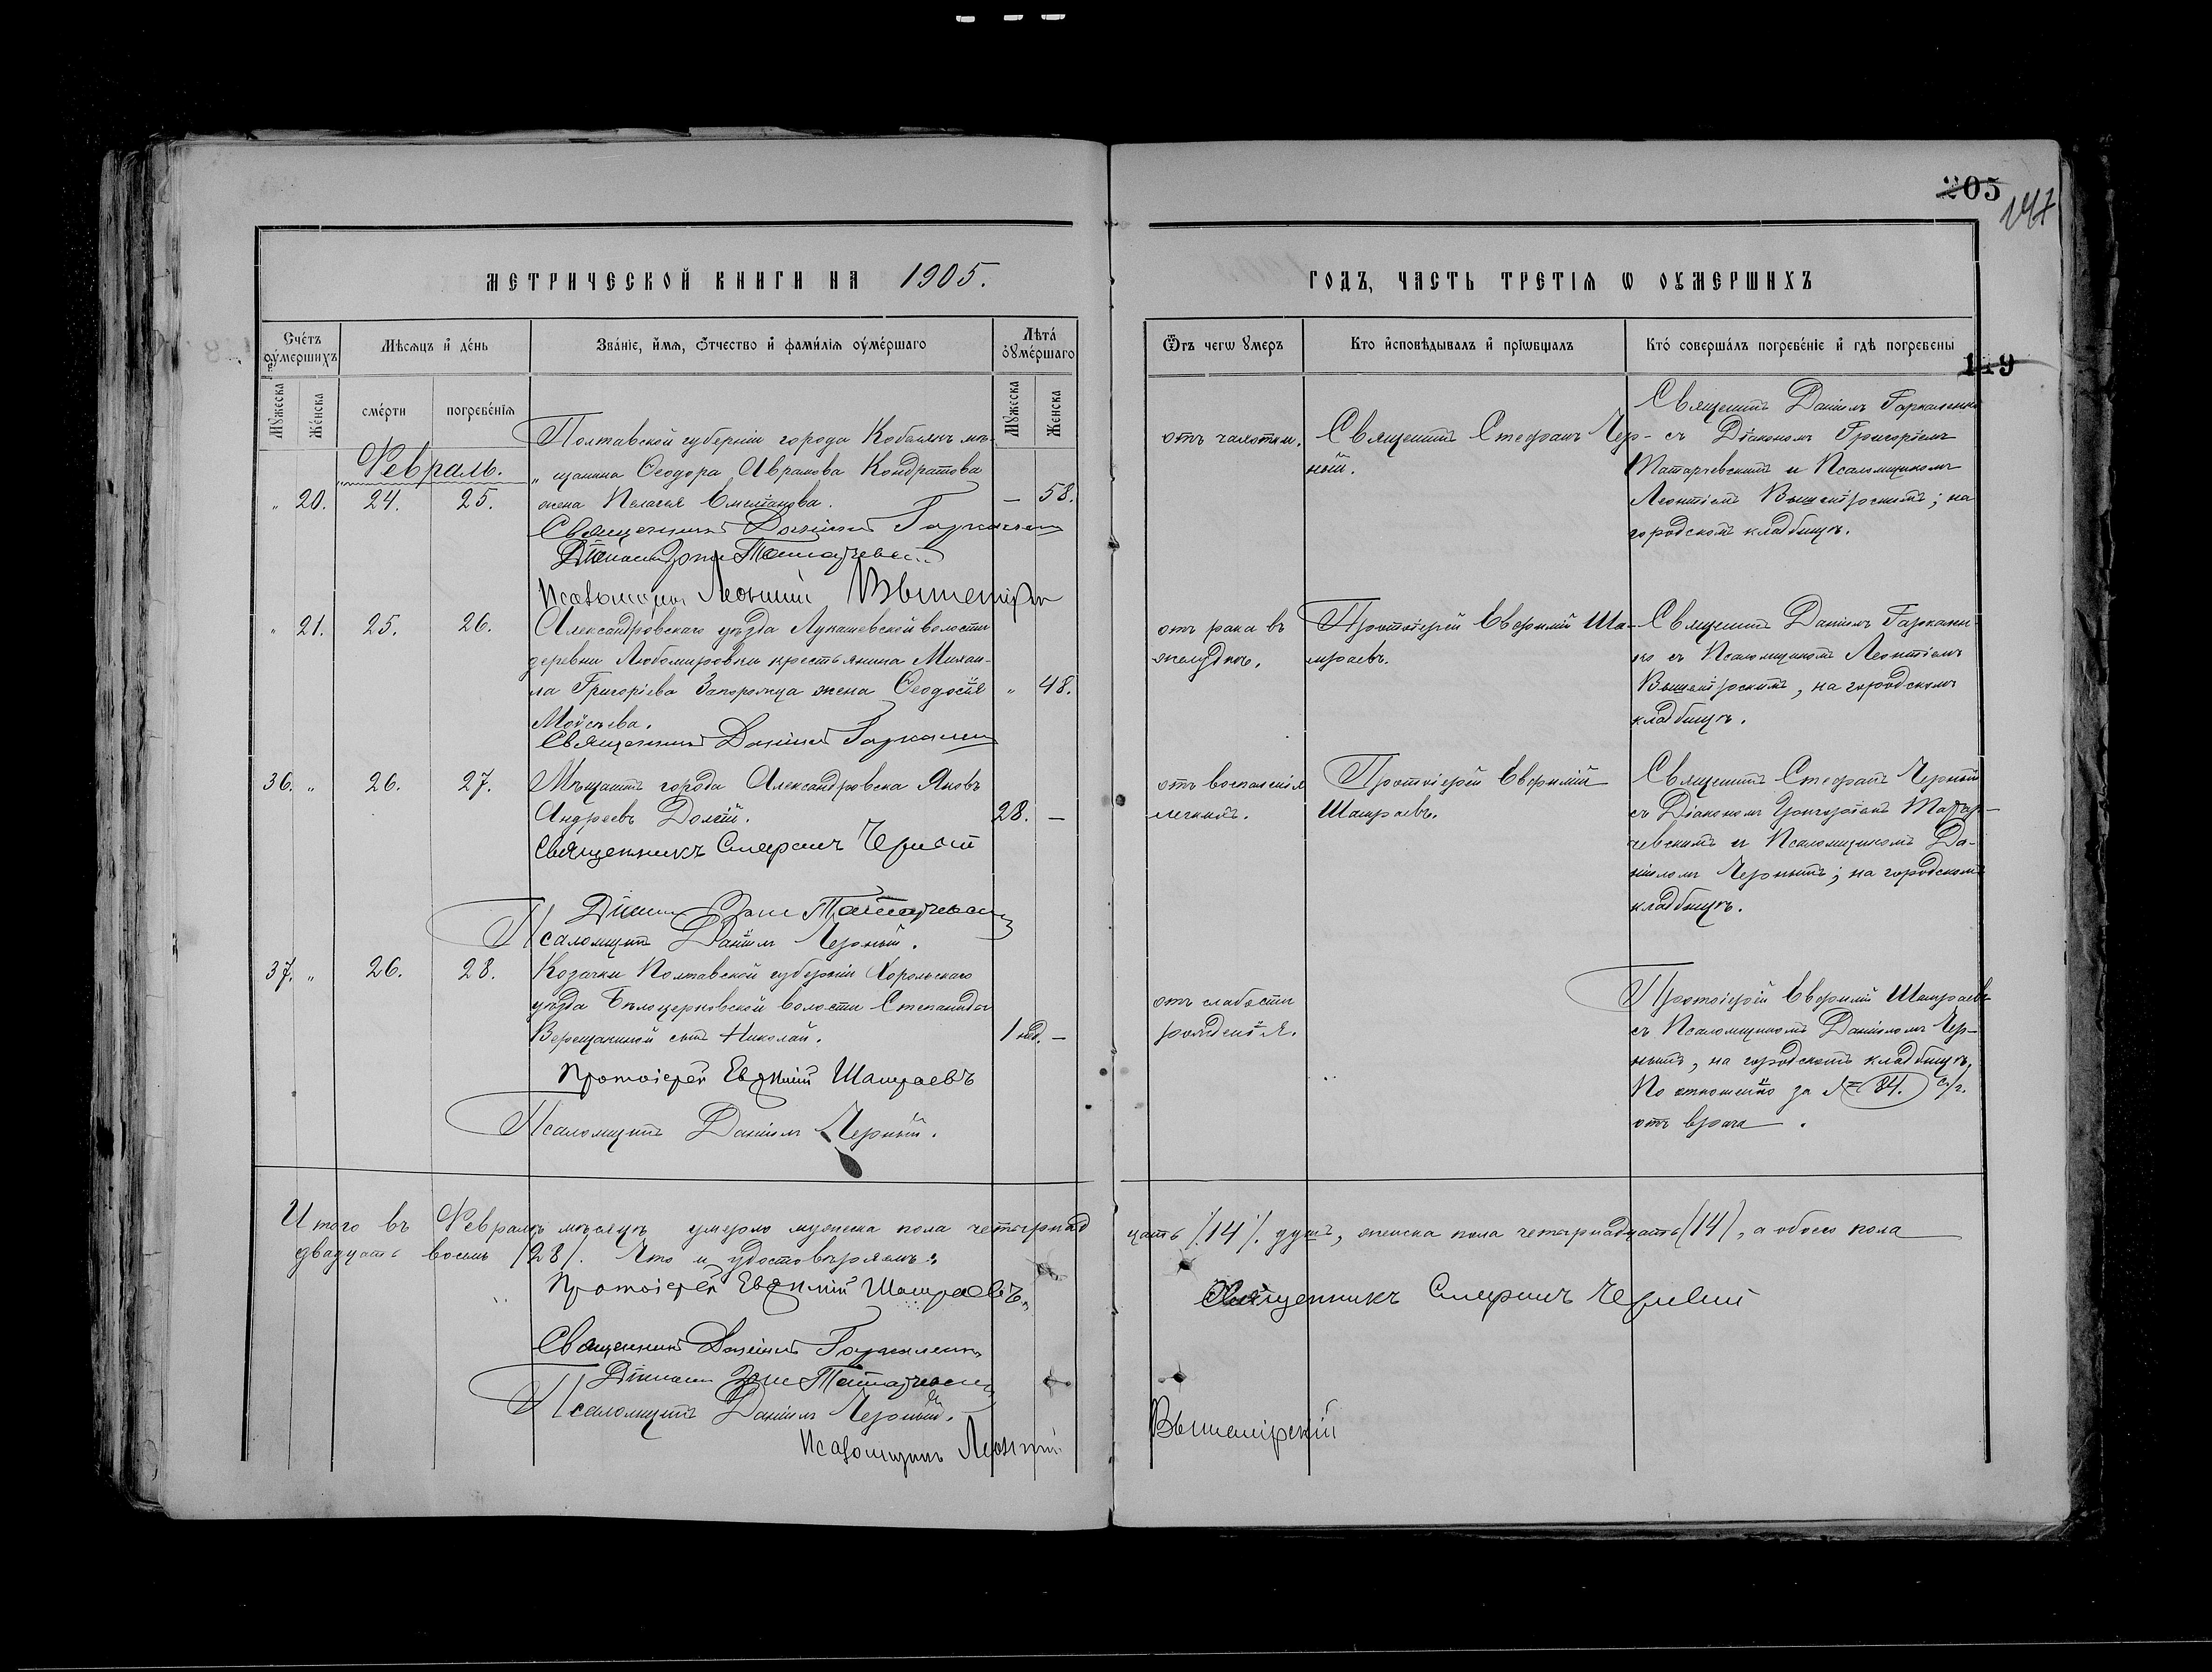 205
147
МЕТРИЧЕСКОЙ КНИГИ НА 1905.
ГОДЪ, ЧАСТЬ ТРЕТІЯ Ѡ ОУМЕРШИХЪ
149
Счétъ оу́мершихъ
Мѣсяцъ и҆ де́нь
Зва́нїе, и҆́мѧ, ѻ҆́тчество и҆ фами́лїѧ оу҆ме́ршаго
Лѣта́ оу҆ме́ршаго
Мꙋжеска
Женска
сме́рти
погребе́нїѧ
Мꙋжеска
Женска
Ѿ чегѡ оу҆меръ
Кто и҆сповѣ́дывалъ и҆ прїѡбща́лъ
Кто́ соверша́лъ погребе́нїе и҆ гдѣ̀ погребены̀
Февраль.
„ 20. 24. 25.
Полтавской губерніи города Кобелякъ мѣ-
щанина Ѳеодора Аврамова Кондратова
жена Пелагея Емельянова.
— 58.
Священникъ Даніилъ Гаркаленко
Діаконъ Григ Татарчевс
Псаломщикъ Леонтій Вышемірскій
отъ чахотки.
Священникъ Стефанъ Чер-
ный.
Священникъ Даніилъ Гаркаленко
съ Діакономъ Григоріемъ
Татарчевскимъ и Псаломщикомъ
Леонтіемъ Вышемірскимъ; на
городскомъ кладбищѣ.
„ 21. 25. 26.
Александровскаго уѣзда Лукашевской волости
деревни Любомировки крестьянина Михаи-
ла Григоріева Запорожца жена Ѳеодосія
Мойсѣева.
„ 48.
Священникъ Даніилъ Гаркаленко
отъ рака въ
желудкѣ.
Протоіерей Евфимій Ша-
мраевъ.
Священникъ Даніилъ Гаркален-
ко съ Псаломщикомъ Леонтіемъ
Вышемірскимъ, на городскомъ
кладбищѣ.
36. „ 26. 27.
Мѣщанинъ города Александровска Яковъ
Андреевъ Долгій.
28. —
Священникъ Стефанъ Черный
Діаконъ Григ Татарчевс
Псаломщикъ Даніилъ Черный.
отъ воспаленія
легкихъ.
Протоіерей Евфимій
Шамраевъ.
Священникъ Стефанъ Черный
съ Діакономъ Григоріемъ Татар-
чевскимъ и Псаломщикомъ Да-
ніиломъ Чернымъ; на городскомъ
кладбищѣ.
37. „ 26. 28.
Козачки Полтавской губерніи Хорольскаго
уѣзда Бѣлоцерковской волости Степаниды
Верещакиной сынъ Николай.
1 нед. —
Протоіерей Евѳимій Шамраевъ
Псаломщикъ Даніилъ Черный.
отъ слабости
рожденія.
Протоіерей Евфимій Шамраевъ
съ Псаломщикомъ Даніиломъ Чер-
нымъ, на городскомъ кладбищѣ,
По отношенію за № 84. с/г.
отъ врача.
Итого въ Февралѣ мѣсяцѣ умерло мужеска пола четырнад
цать /14/ душъ, женска пола четырнадцать (14), а обоего пола
двадцать восемь /28/. Что и удостовѣряемъ:
Протоіерей Евѳимій Шамраевъ.
Священникъ Стефанъ Черный
Священникъ Даніилъ Гаркаленко
Діаконъ Григ Татарчевс
Псаломщикъ Даніилъ Черный.
Псаломщикъ Леонтій Вышемірскій